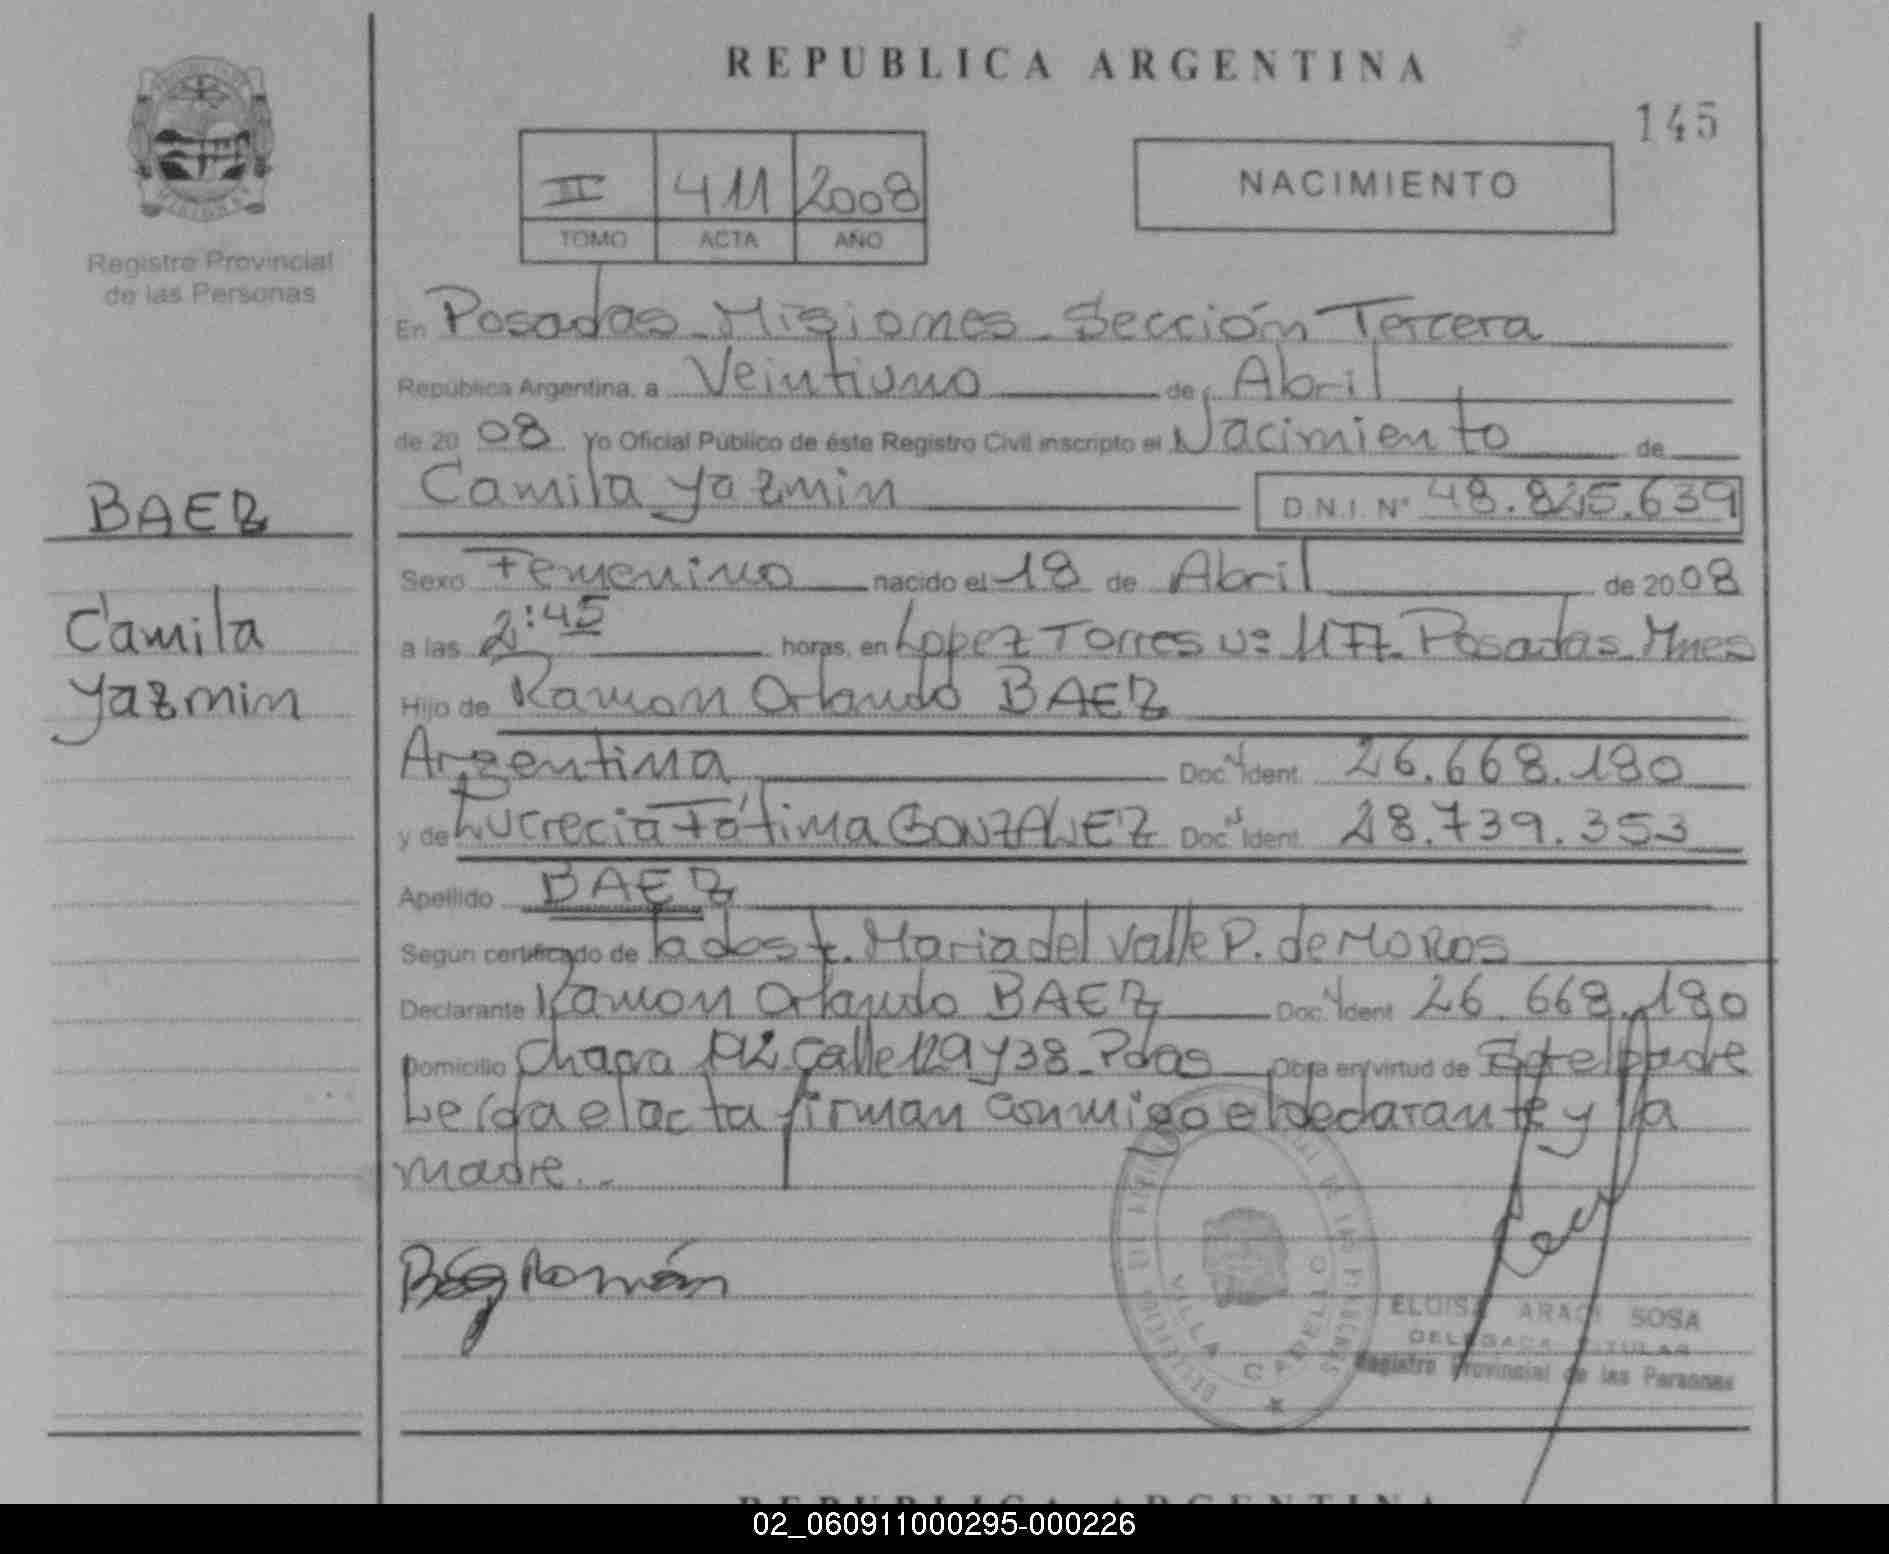 REPUBLICA ARGENTINA
145
II 411 2008
TOMO ACTA AÑO
NACIMIENTO
Registro Provincial
de las Personas
En Posadas Misiones Sección Tercera
República Argentina, a Veintiuno de Abril
de 20 08 Yo Oficial Público de éste Registro Civil inscripto el Nacimiento de
Camila Yazmin D.N.I. N° 48.825.639
BAEZ
Camila
Yazmin
Sexo Femenino nacido el 18 de Abril de 20 08
a las 2:45 horas, en Lopez Torres Nº 1177. Posadas Mnes
Hijo de Ramon Orlando BAEZ
Argentina Doc. Ident. 26.668.180
y de Lucrecia Fátima GONZALEZ Doc. Ident. 28.739.353
Apellido BAEZ
Según certificado de María del Valle P. de MOROS
Declarante Ramon Orlando BAEZ Doc. Ident 26.668.180
Domicilio Chacra 192 Calle 129 y 38 Pdas Obra en virtud de Ser el padre
Leída el acta firman conmigo el declarante y la
madre.
Román
VILLA CABELLO
ELOISA ARACI SOSA
DELEGADA TITULAR
Registro Provincial de las Personas
REPUBLICA ARGENTINA
02_060911000295-000226